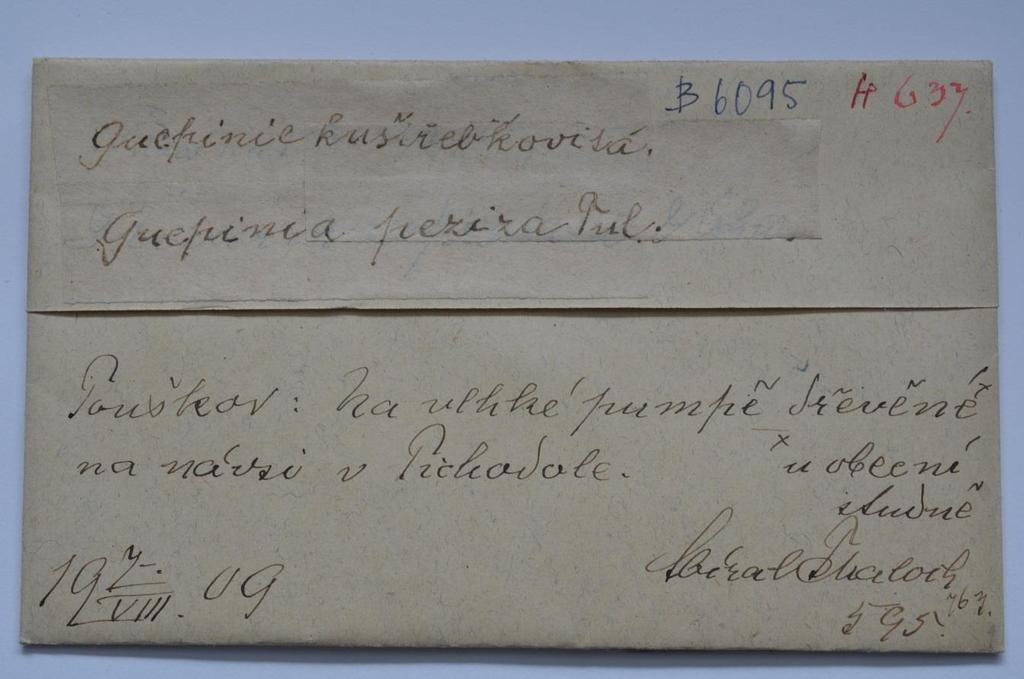 B 6095 H 637.
Guepinie kustřebkovisá.
Guepinia peziza Tul.
Touškov: Na vlhké pumpě dřevěné
na návsi v Tichodole. × u obecní
studně
19 7./VIII. 09
sbíral Tkaloch
595. 767.